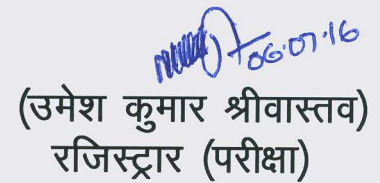 06.07.16
(उमेश कुमार श्रीवास्तव)
रजिस्ट्रार (परीक्षा)